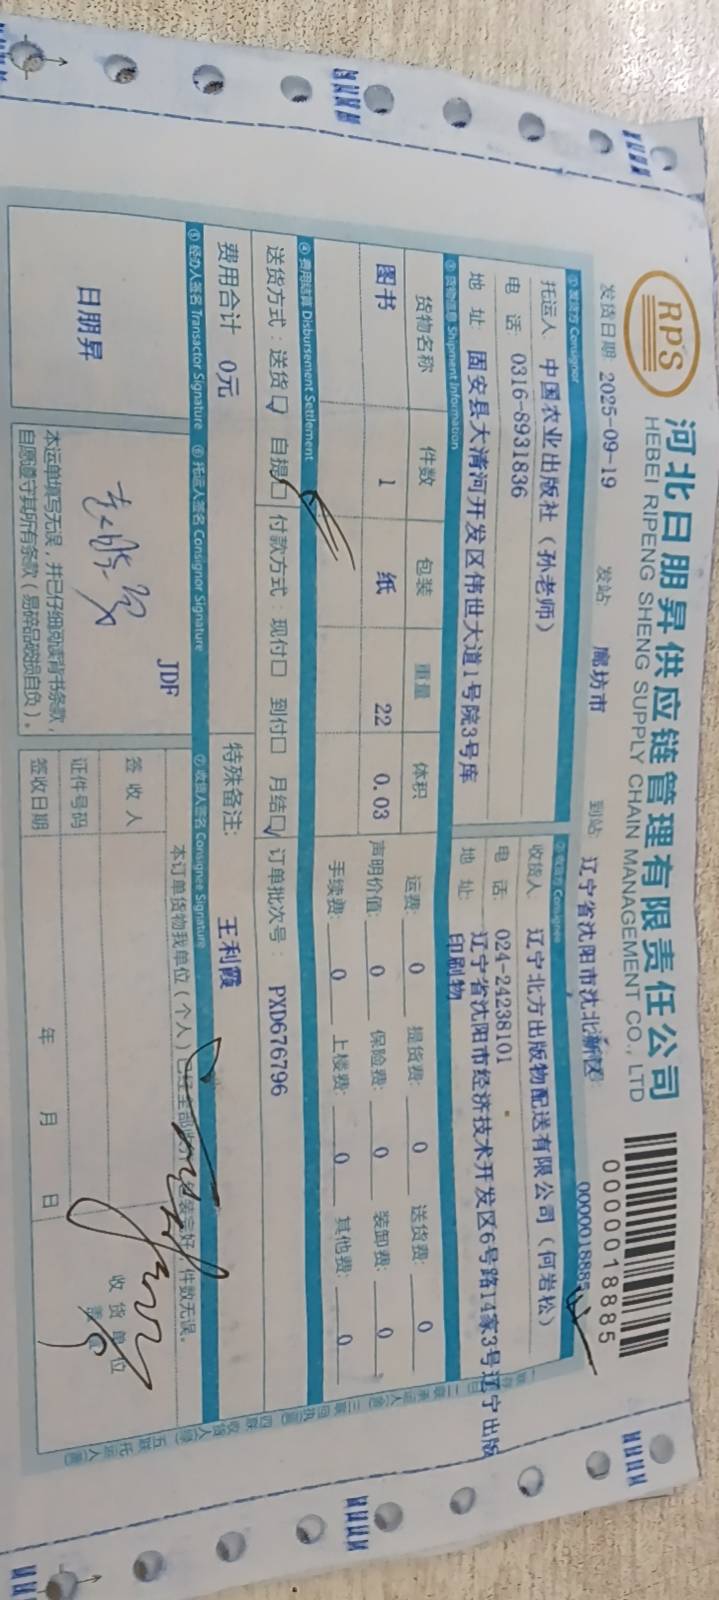 RPS
河北日朋昇供应链管理有限责任公司
HEBEI RIPENG SHENG SUPPLY CHAIN MANAGEMENT CO., LTD
0000018885
0000018885
发货日期 2025-09-19 发站 廊坊市 到站: 辽宁省沈阳市沈北新区
①发货方 Consignor
②收货方 Consignee
托运人 中国农业出版社(孙老师)
收货人 辽宁北方出版物配送有限公司(何岩松)
电 话: 0316-8931836
电 话: 024-24238101
地 址 固安县大清河开发区伟世大道1号院3号库
地 址: 辽宁省沈阳市经济技术开发区6号路14家3号辽宁出版
印刷物
③货物信息 Shipment Information
货物名称 件数 包装 重量 体积
图书 1 纸 22 0.03
运费: 0 提货费: 0 送货费: 0
声明价值: 0 保险费: 0 装卸费: 0
手续费: 0 上楼费: 0 其他费: 0
④费用结算 Disbursement Settlement
送货方式:送货☑ 自提□ 付款方式:现付□ 到付□ 月结☑ 订单批次号: PXD676796
费用合计 0元
特殊备注: 王利霞
⑤经办人签名 Transactor Signature
⑥托运人签名 Consignor Signature
⑦收货人签名 Consignee Signature
日朋昇
JDF
本运单填写无误,并已仔细阅读背书条款,
自愿遵守其所有条款(易碎品破损自负)。
本订单货物我单位(个人)已经全部收齐,包装完好,件数无误。
签收人
证件号码
签收日期 年 月 日
收货单位